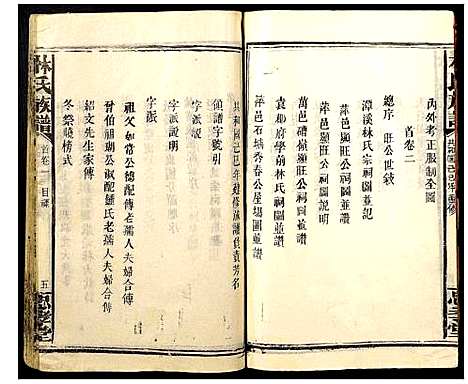 林氏族譜
內外考正服制全圖
首卷二
總序 旺公世錄
漳溪林氏宗祠圖並記
萍邑旺公祠圖並讚
萍邑旺公祠圖說明
袁柳府學前林氏祠圖並讚
萍邑石塘秀春公屋場圖並讚
共和國己巳年建修族譜負責芳名
領譜字號引
字派
字派說明
字派
祖父如常公德配傅老孺人夫婦合傳
晉伯祖瑚公淑配鍾氏老孺人夫婦合傳
紹文先生家傳
冬祭燒榜式
林氏族譜
首卷一 目錄
五